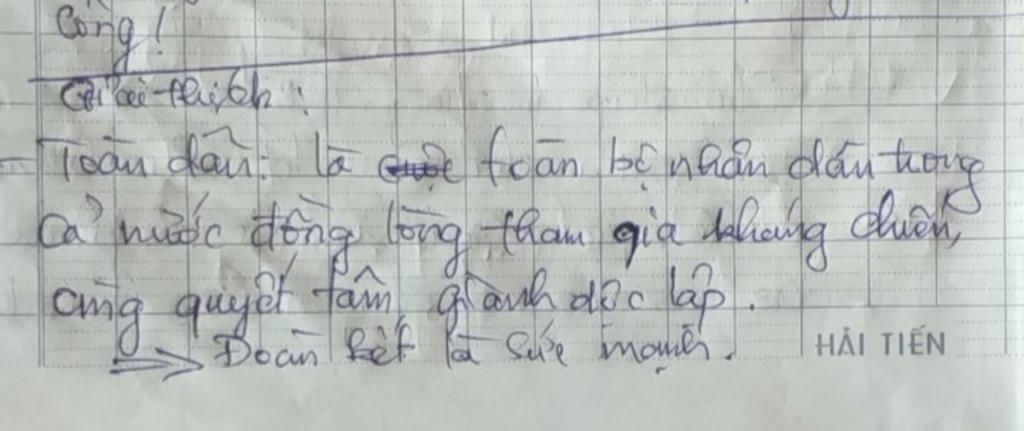 Công!
Giải thích:
Toàn dân: là toàn bộ nhân dân trong
cả nước đồng lòng tham gia kháng chiến,
cùng quyết tâm giành độc lập.
=> Đoàn kết là sức mạnh.
HẢI TIẾN